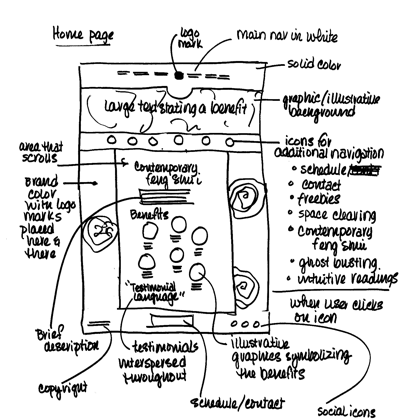 Home page
logo
mark
main nav in white
solid color
Large text stating a benefit
graphic/illustrative
background
icons for
additional navigation
• schedule/
• contact
• freebies
• space clearing
• contemporary
feng shui
• ghost busting
• intuitive readings
when user clicks
on icon
area that
scrolls
Brand
color
with logo
marks
placed
here &
there
contemporary
feng shui
Benefits
"Testimonial
Language"
Brief
description
copyright
testimonials
interspersed
throughout
illustrative
graphics symbolizing
the benefits
schedule/contact
social icons